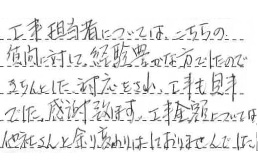 工事担当者については、こちらの
質問に対して、経験豊かな方でしたので
きちんとした対応をされ、工事も見事
でした。感謝致します。工事金額については
他社さんと余り変わりはしておりませんでした。